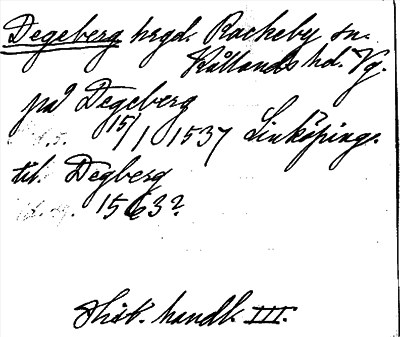 Degeberg hrgd. Rackeby sn.
Kållands hd. Vg.
på Degeberg
15/1 1537 Linköpings.
til. Degberg
1563?
Hist. handl. III.